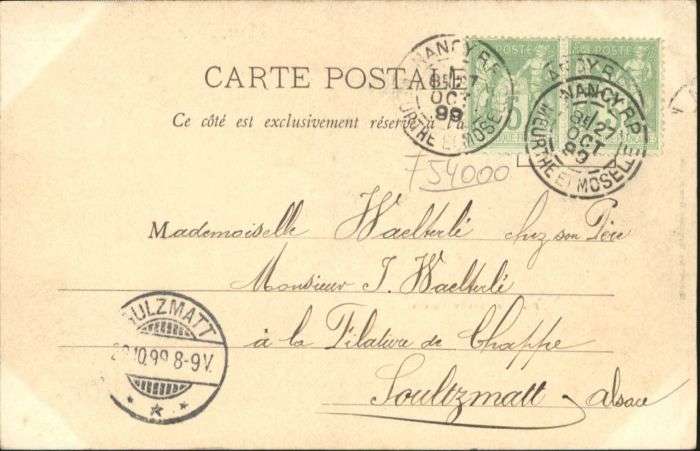 CARTE POSTALE
Ce côté est exclusivement réservé à l'a
POSTE POSTE
NANCY R.P.
OCT
99
MEURTHE ET MOSELLE
NANCY R.P.
27
OCT
99
MEURTHE ET MOSELLE
F 54000
Mademoiselle Waelterlé chez son Père
Monsieur J. Waelterlé
à la Filature de Chappe
Soultzmatt - Alsace
SULZMATT
10.99 8-9V.